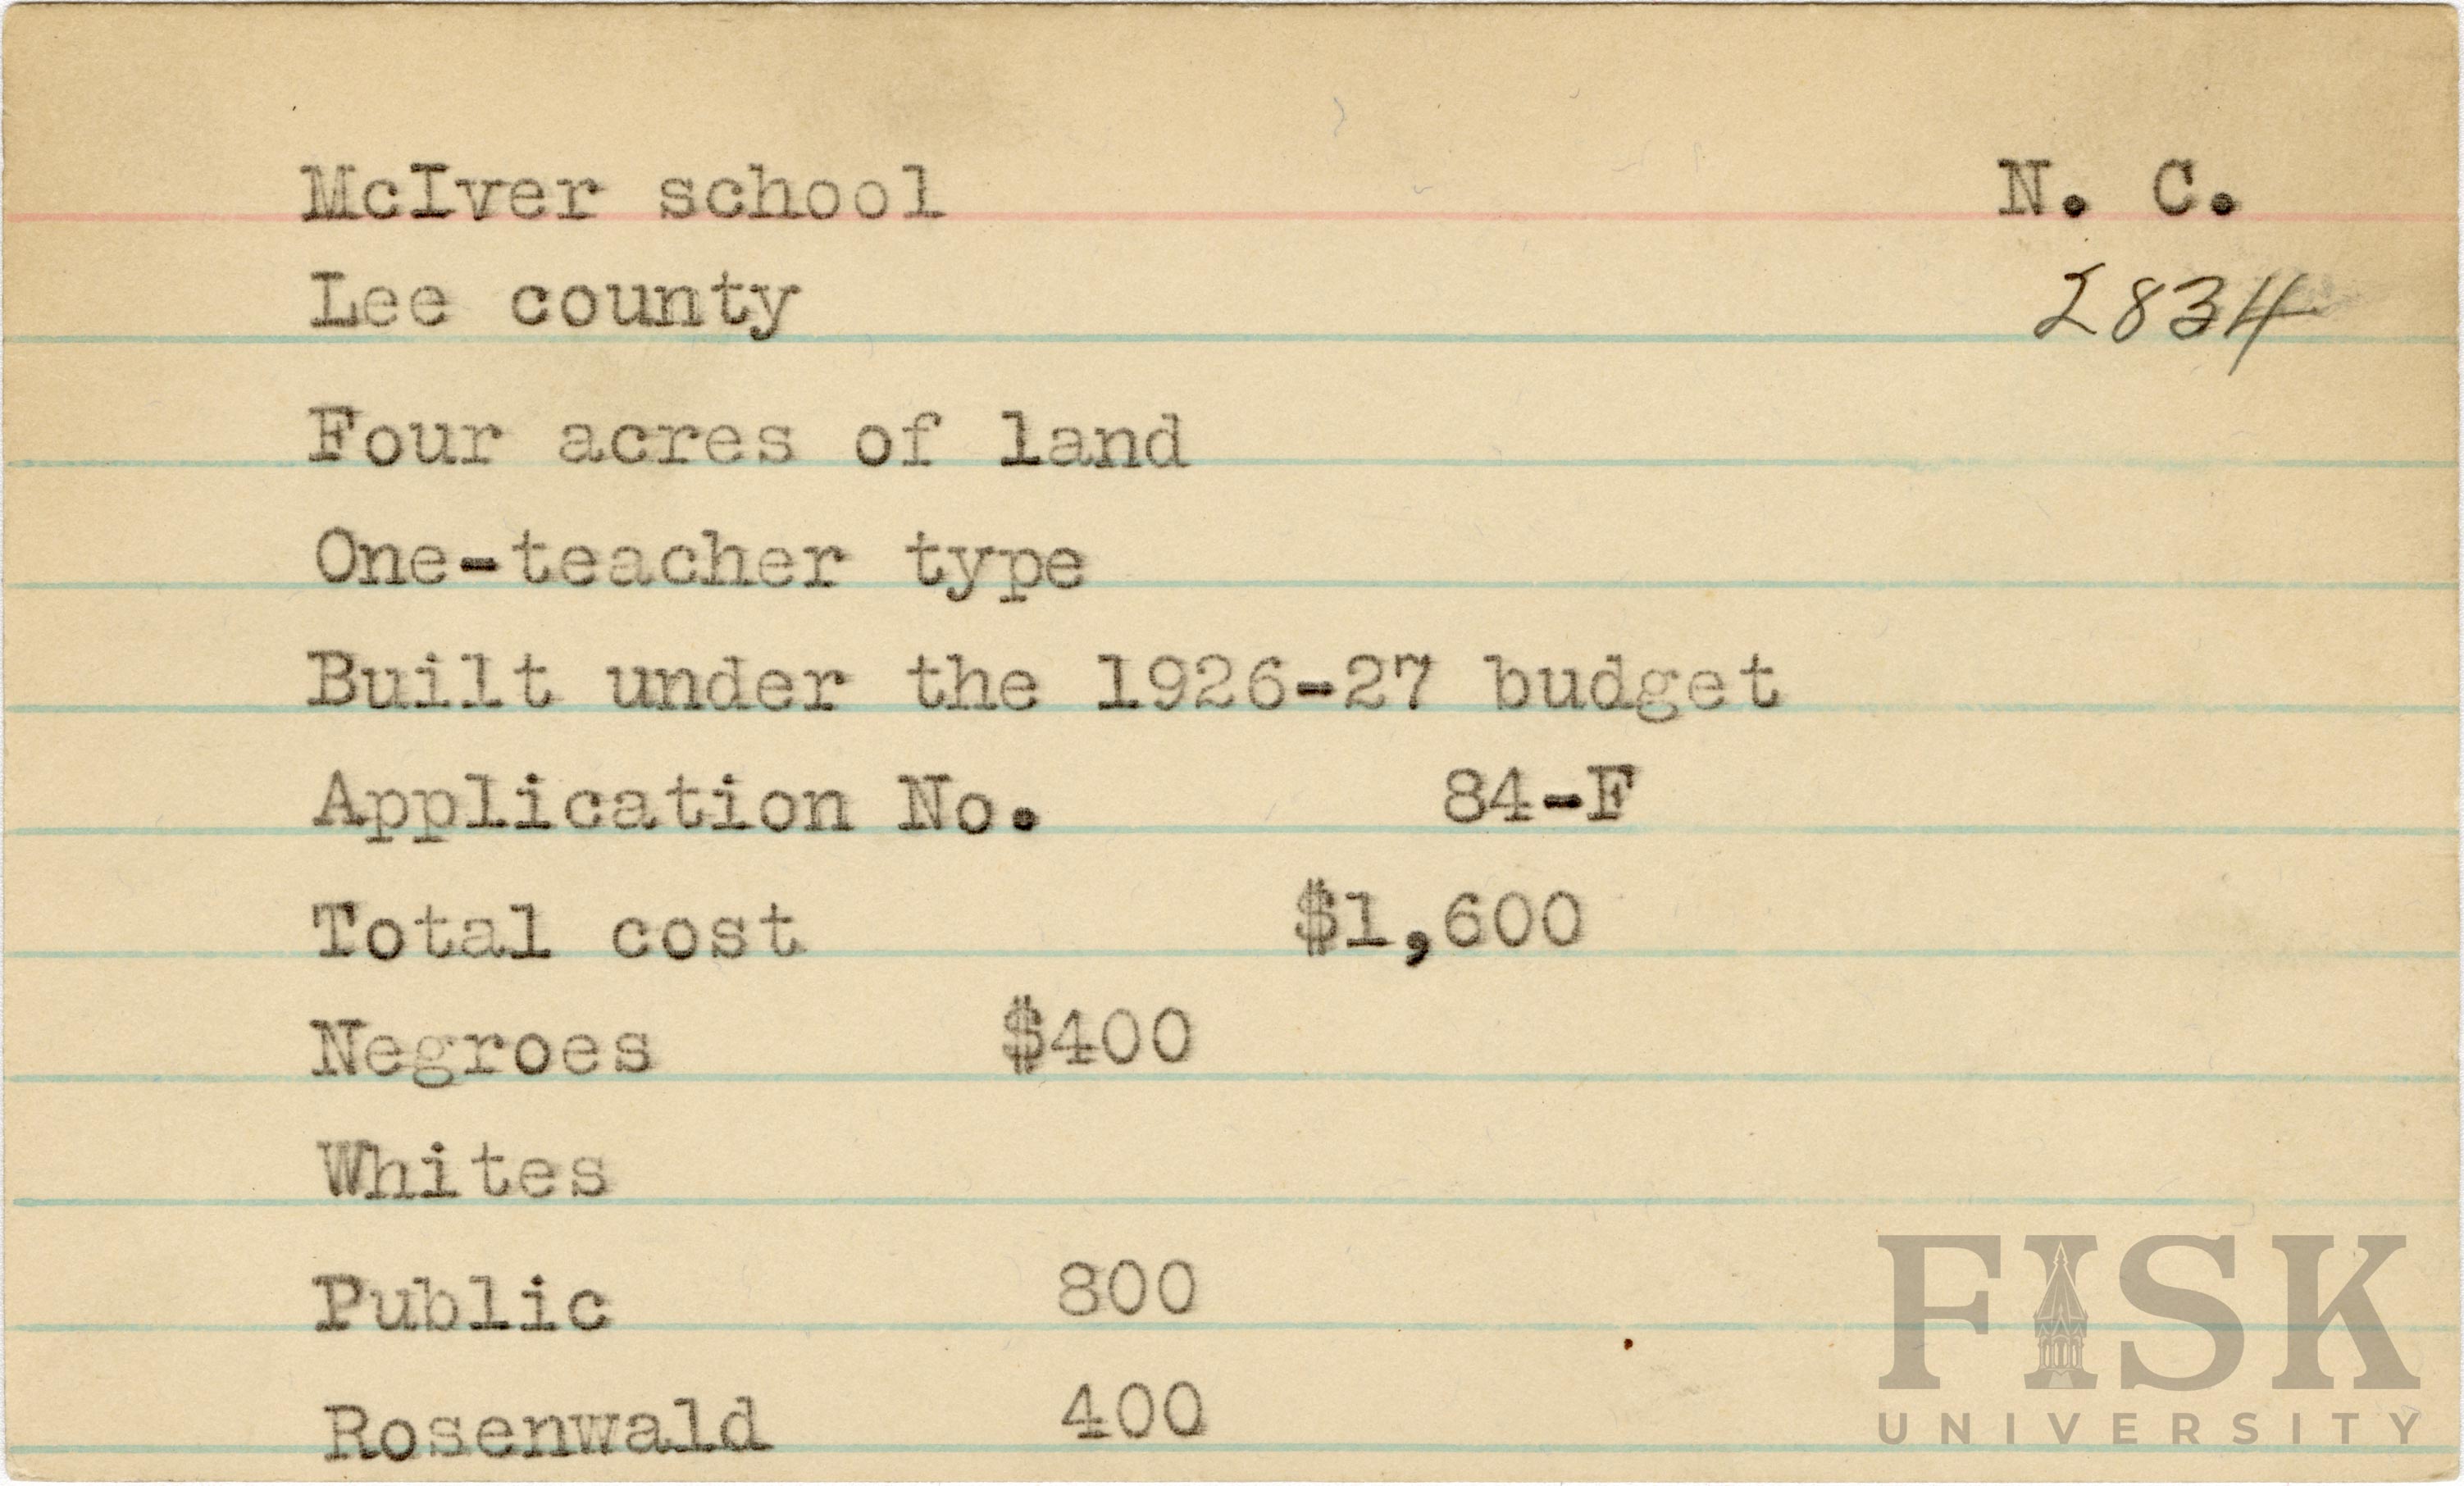 McIver school N. C.
Lee county 2834
Four acres of land
One-teacher type
Built under the 1926-27 budget
Application No. 84-F
Total cost $1,600
Negroes $400
Whites
Public 800
Rosenwald 400
FISK
UNIVERSITY